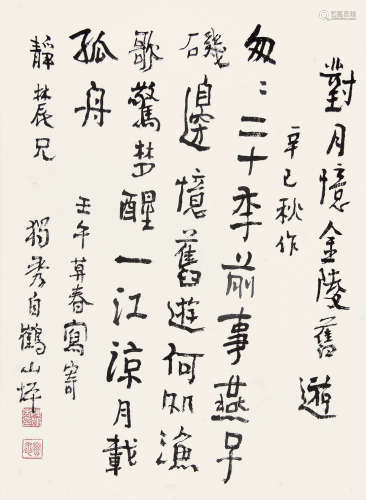 對月憶金陵舊遊
辛巳秋作
匆:二十季前事燕子
磯邊憶舊遊何処漁
歌驚梦醒一江涼月載
孤舟
靜農兄
壬午莫春寫寄
獨秀自鶴山坪